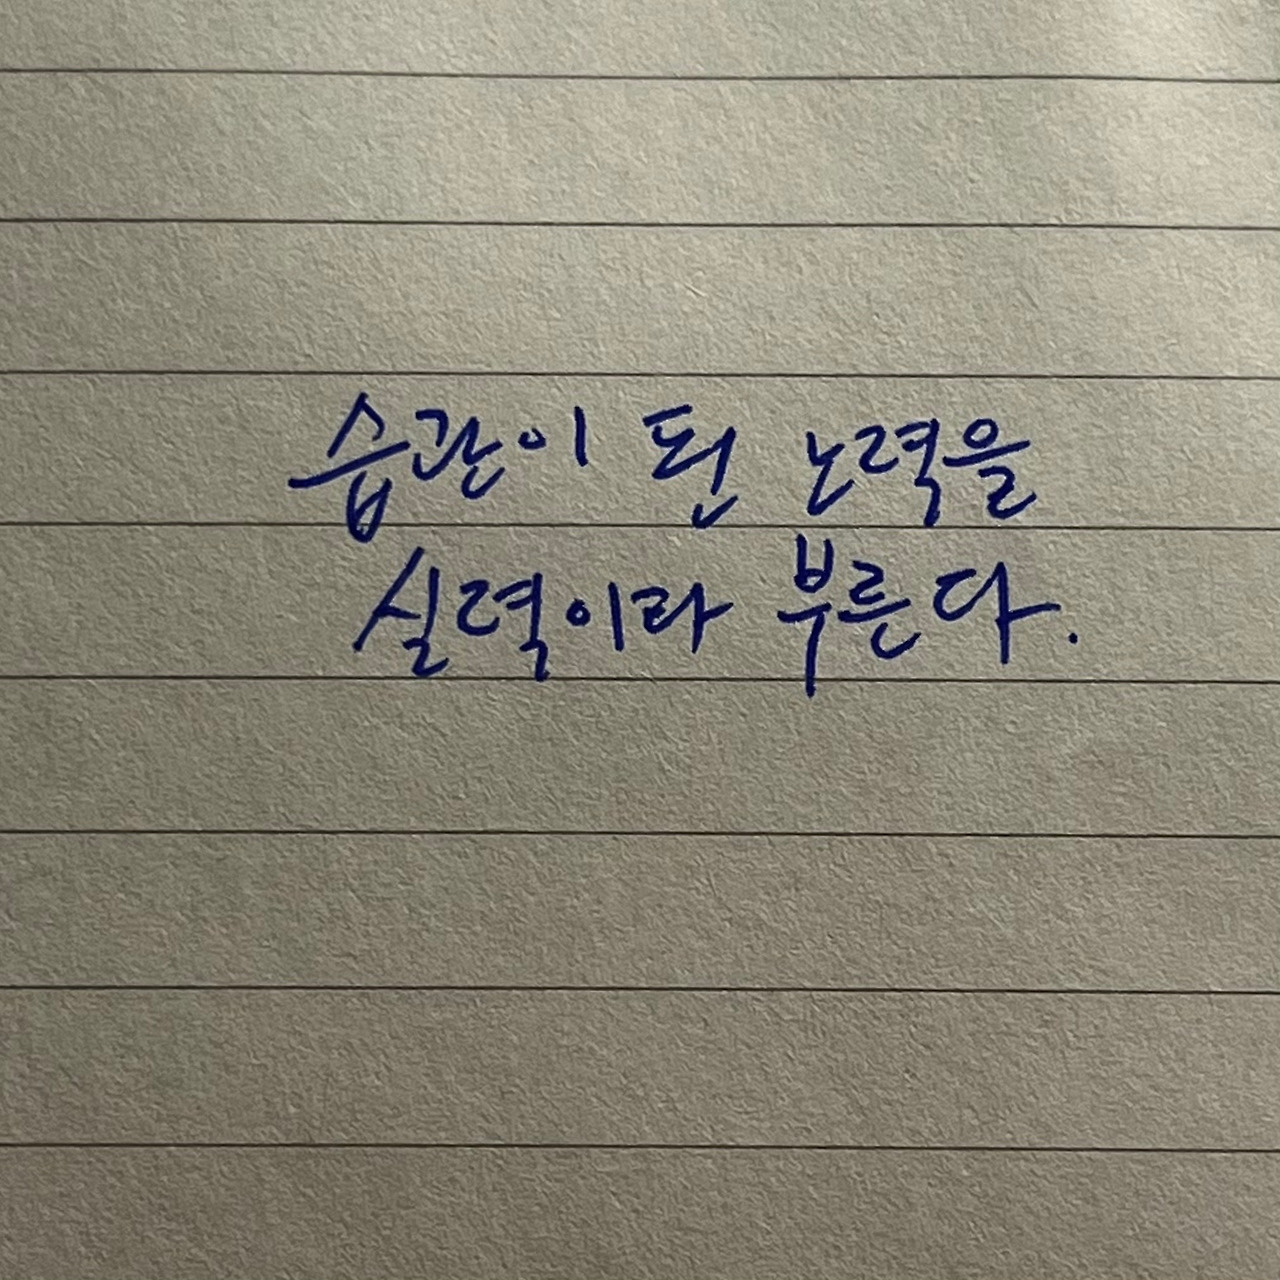 습관이 된 노력을
실력이라 부른다.